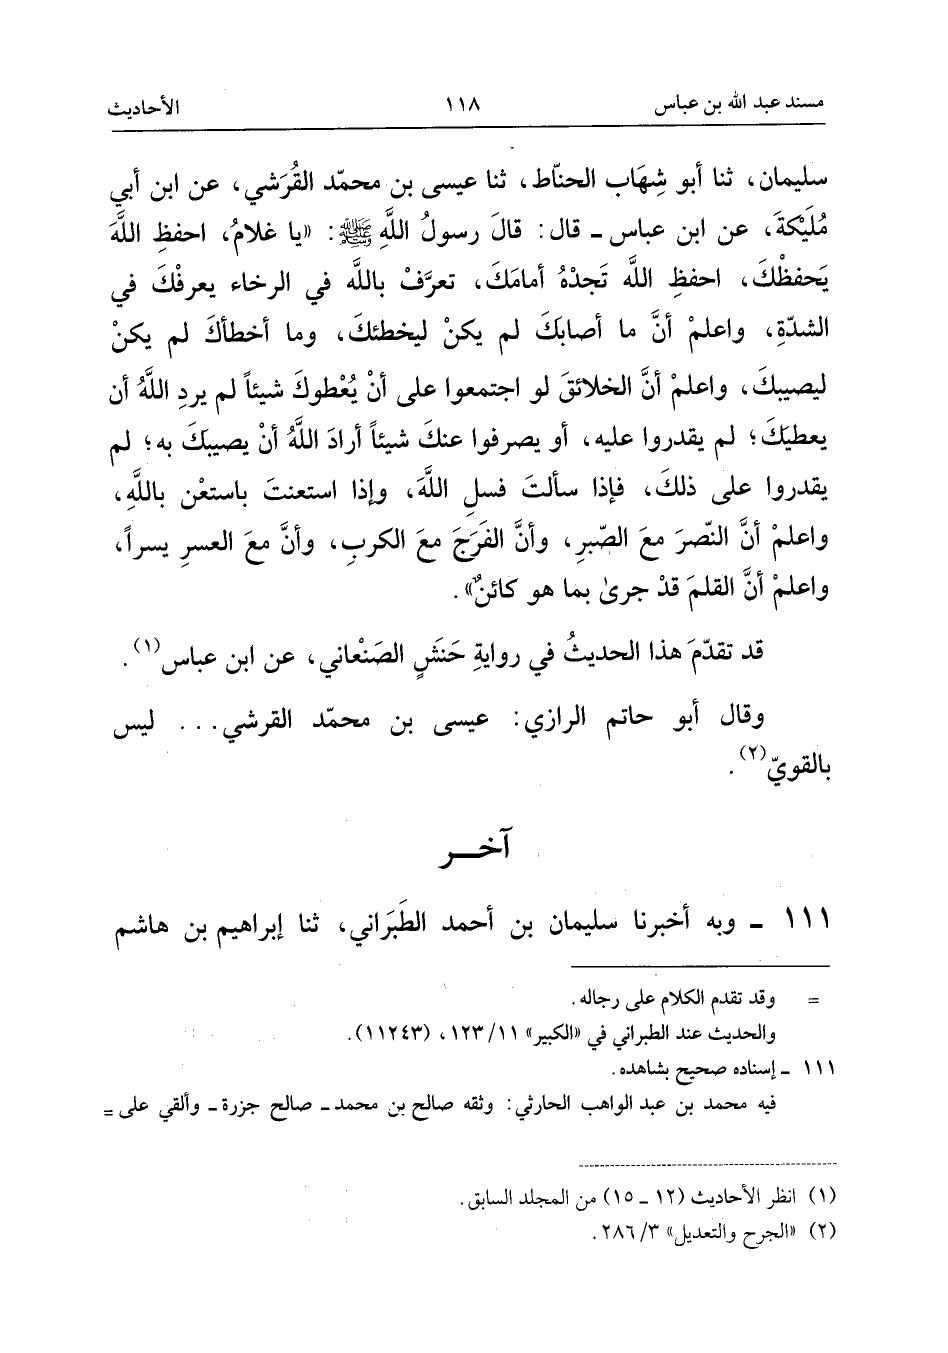 مسند عبد الله بن عباس ١١٨ الأحاديث
سليمان، ثنا أبو شِهَاب الحنّاط، ثنا عيسى بن محمّد القُرَشي، عن ابن أبي
مُلَيْكةَ، عن ابن عباس ـ قال: قالَ رسولُ اللَّهِ ﷺ: «يا غلامُ، احفظِ اللَّهَ
يَحفظْكَ، احفظِ اللَّه تَجدْهُ أمامَكَ، تعرَّفْ باللَّه في الرخاء يعرفْكَ في
الشدّةِ، واعلمْ أنَّ ما أصابكَ لم يكنْ ليخطئكَ، وما أخطأكَ لم يكنْ
ليصيبكَ، واعلمْ أنَّ الخلائقَ لو اجتمعوا على أنْ يُعْطوكَ شيئاً لم يردِ اللَّهُ أن
يعطيَكَ؛ لم يقدروا عليه، أو يصرفوا عنكَ شيئاً أرادَ اللَّهُ أنْ يصيبَكَ به؛ لم
يقدروا على ذلكَ، فإذا سألتَ فسلِ اللَّهَ، وإذا استعنتَ باستعْن باللَّهِ،
واعلمْ أنَّ النّصرَ معَ الصّبرِ، وأنَّ الفَرَجَ معَ الكربِ، وأنَّ معَ العسرِ يسراً،
واعلمْ أنَّ القلمَ قدْ جرىٰ بما هو كائنٌ».
قد تقدّمَ هذا الحديثُ في روايةِ حَنَشٍ الصَنْعاني، عن ابن عباس(١).
وقال أبو حاتم الرازي: عيسى بن محمّد القرشي... ليس
بالقويّ(٢).
آخــر
١١١ ـ وبه أخبرنا سليمان بن أحمد الطَبَراني، ثنا إبراهيم بن هاشم
= وقد تقدم الكلام على رجاله.
والحديث عند الطبراني في «الكبير» ١٢٣/١١، (١١٢٤٣).
١١١ ـ إسناده صحيح بشاهده.
فيه محمد بن عبد الواهب الحارثي: وثقه صالح بن محمد ـ صالح جزرة ـ وألقي على =
(١) انظر الأحاديث (١٢ ـ ١٥) من المجلد السابق.
(٢) «الجرح والتعديل» ٢٨٦/٣.